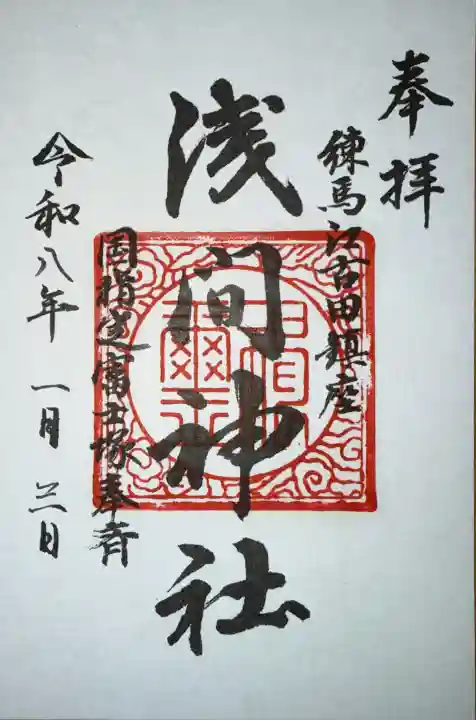 奉拝
練馬江古田鎮座
浅間神社
国指定富士塚奉斎
令和八年 一月 三日